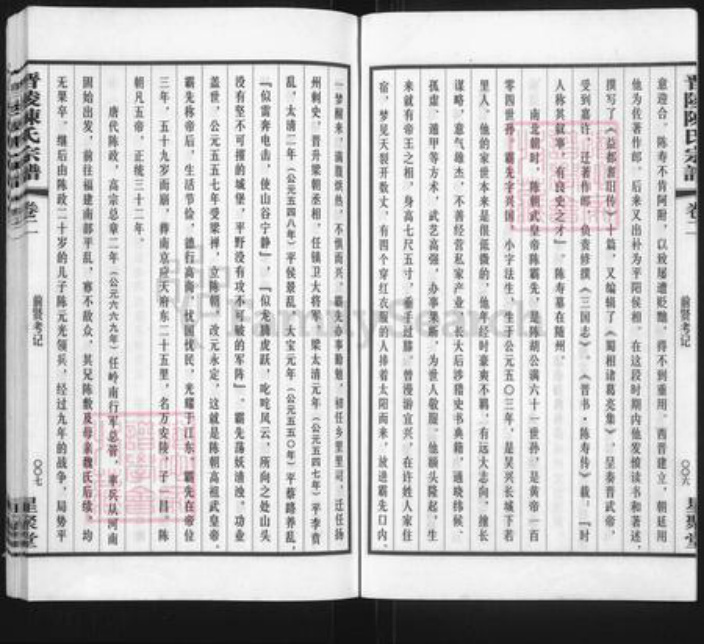 晋陵陈氏宗谱
卷二
前贤考记
〇〇六
星聚堂
意迎合。陈寿不肯阿附，以致屡遭贬黜，得不到重用。西晋建立，朝廷用
他为佐著作郎，后来又出补为平阳侯相。在这段时期内他发愤读书和著述，
撰写了《益都耆旧传》十篇，又编辑了《蜀相诸葛亮集》，呈奏晋武帝，
受到嘉许，迁著作郎，负责修撰《三国志》。《晋书·陈寿传》载：“时
人称其叙事，有良史之才”。陈寿墓在随州。
南北朝时，陈朝武皇帝陈霸先，是陈胡公满六十一世孙，是黄帝一百
零四世孙。霸先字兴国，小字法生，生于公元五〇三年，是吴兴长城下若
里人。他的家世本来是很低微的，他年经时豪爽不羁，有远大志向，擅长
谋略，意气雄杰，不善经营私家产业。长大后涉猎史书典籍，通晓纬候、
孤虚、遁甲等方术，武艺高强，办事果断，为世人敬服。他额头隆起，生
来就有帝王之相，身高七尺五寸，垂手过膝。曾漫游宜兴，在许姓人家住
宿，梦见天裂开数丈，有四个穿红衣服的人捧着太阳而来，放进霸先口内。
一梦醒来，满腹炽热，不惧而兴。霸先办事勤勉，初任乡里里司，迁任扬
州刺史，晋升梁朝丞相，任镇卫大将军。梁太清元年（公元五四七年）平李贲
乱，太清二年（公元五四八年）平侯景乱，大宝元年（公元五五〇年）平蔡路养乱，
“似雷奔电击，使山谷宁静”，“似龙腾虎跃，叱咤风云，所向之处山头
没有坚不可摧的城堡，平野没有攻不可破的军阵”。霸先荡妖清浊，功业
盖世，公元五五七年受梁禅，立陈朝，改元永定，这就是陈朝高祖武皇帝。
霸先称帝后，生活节俭，德行高尚，忧国忧民，光耀于江东。霸先在帝位
三年，五十九岁而崩，葬南京应天府东二十五里，名万安陵，子一昌。陈
朝凡五帝，正统三十二年。
唐代陈政，高宗总章二年（公元六六九年）任岭南行军总管，率兵从河南
固始出发，前往福建南部平乱，寡不敌众，其兄陈敷及母亲魏氏后续，均
无果卒。继后由陈政二十岁的儿子陈元光领兵，经过九年的战争，局势平
晋陵陈氏宗谱
卷二
前贤考记
〇〇七
星聚堂
FamilySearch